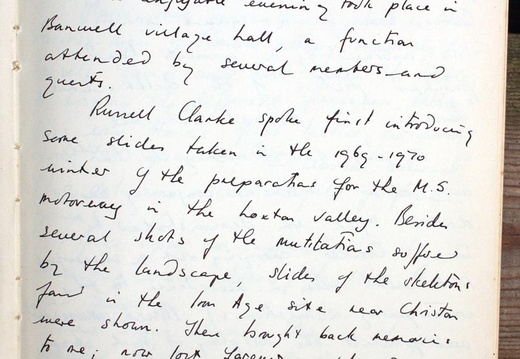 enjoyable evening took place in
Banwell village hall, a function
attended by several members and
guests.
Russell Clarke spoke first introducing
some slides taken in the 1969-1970
winter of the preparations for the M.5.
motorway in the Loxton valley. Besides
several shots of the mutilations suffered
by the landscape, slides of the skeletons
found in the Iron Age site near Christon
were shown. These brought back memories
to me; now lost